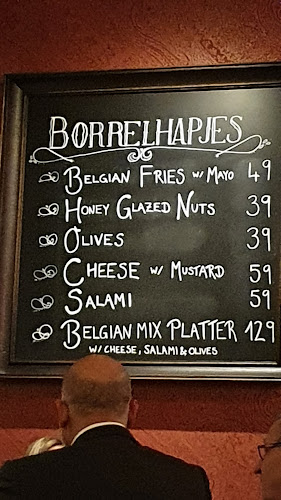 BORRELHAPJES
BELGIAN FRIES W/ MAYO 49
HONEY GLAZED NUTS 39
OLIVES 39
CHEESE W/ MUSTARD 59
SALAMI 59
BELGIAN MIX PLATTER 129
W/ CHEESE, SALAMI & OLIVES